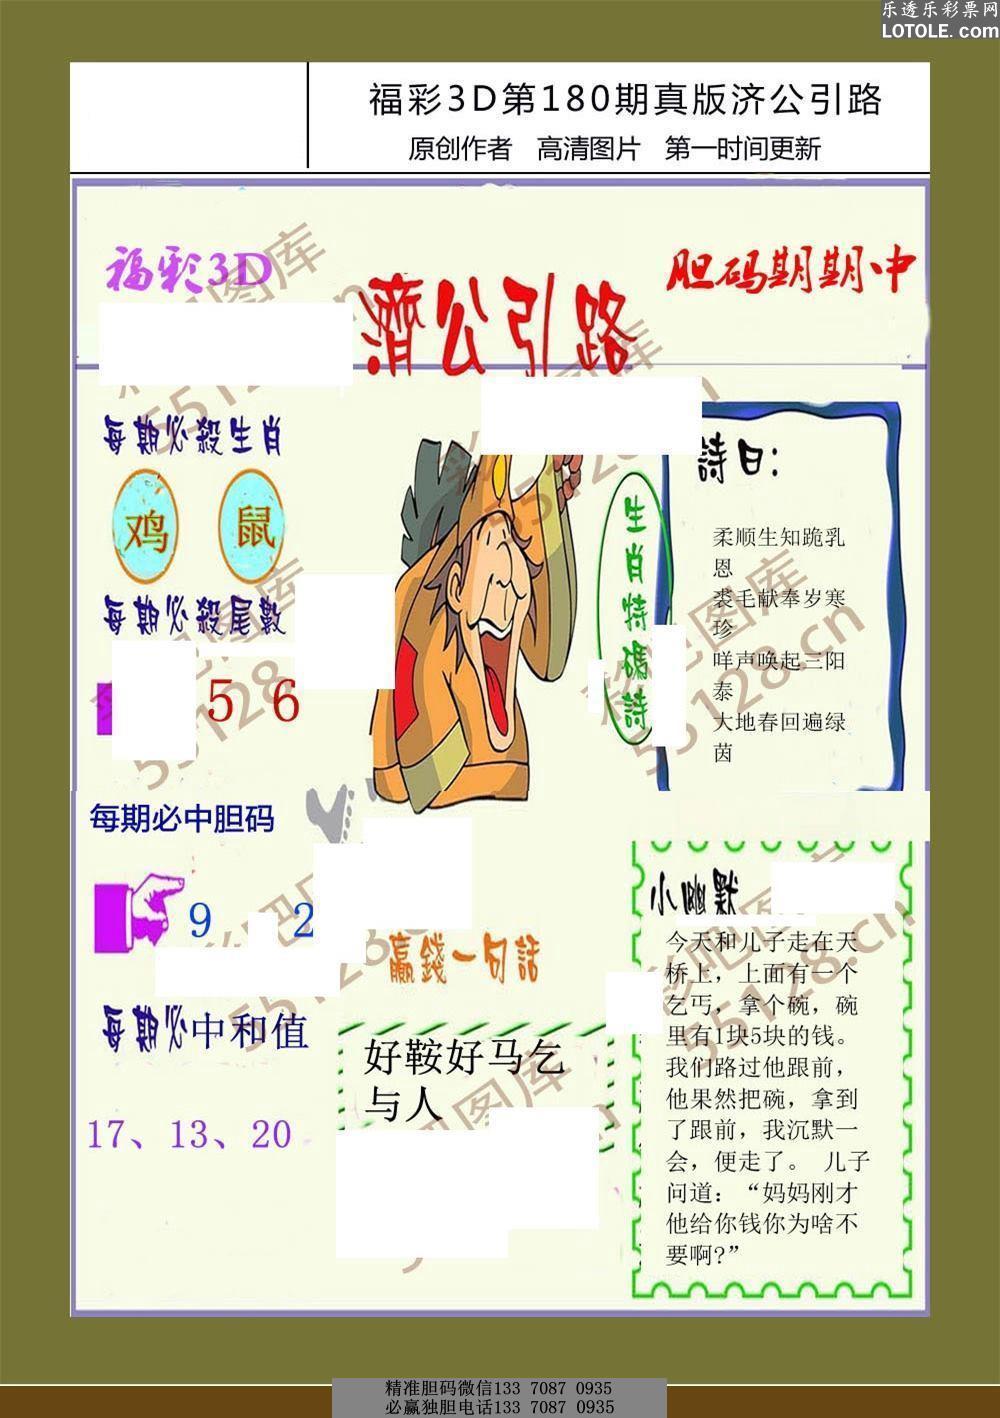 乐透乐彩票网
LOTOLE.com
福彩3D第180期真版济公引路
原创作者 高清图片 第一时间更新
福彩3D
濟公引路
胆码期期中
每期必殺生肖
鸡 鼠
每期必殺尾數
5 6
每期必中胆码
9 2
每期必中和值
17、13、20
生肖特碼詩
詩曰:
柔顺生知跪乳
恩
裘毛献奉岁寒
珍
咩声唤起三阳
泰
大地春回遍绿
茵
赢錢一句話
好鞍好马乞
与人
小幽默
今天和儿子走在天
桥上，上面有一个
乞丐，拿个碗，碗
里有1块5块的钱。
我们路过他跟前，
他果然把碗，拿到
了跟前，我沉默一
会，便走了。 儿子
问道：“妈妈刚才
他给你钱你为啥不
要啊?”
彩吧图库
55128.cn
精准胆码微信133 7087 0935
必赢独胆电话133 7087 0935